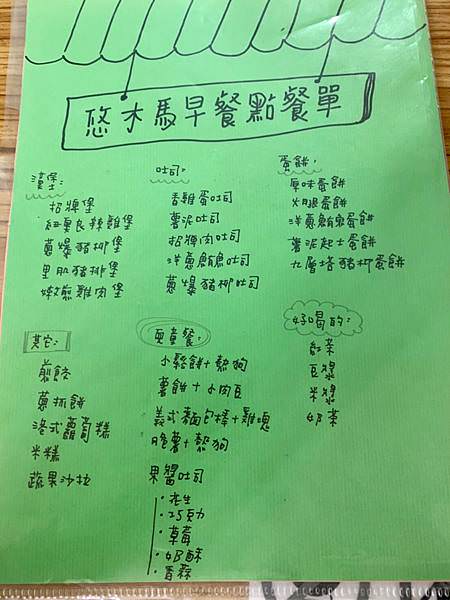 悠木馬早餐點餐單
漢堡:
招牌堡
紅薑良辣雞堡
蔥爆豬柳堡
里肌豬排堡
嫩煎雞肉堡
吐司:
香雞蛋吐司
薯泥吐司
招牌肉吐司
洋蔥鮪魚吐司
蔥爆豬柳吐司
蛋餅:
原味蛋餅
火腿蛋餅
洋蔥鮪魚蛋餅
薯泥起士蛋餅
九層塔豬柳蛋餅
其它:
煎餃
蔥抓餅
港式蘿蔔糕
米糕
蔬果沙拉
兒童餐:
小鬆餅+熱狗
薯餅+小肉豆
義式麵包棒+雞塊
脆薯+熱狗
果醬吐司
·花生
·巧克力
·草莓
·奶酥
·香蒜
好喝的:
紅茶
豆漿
米漿
奶茶